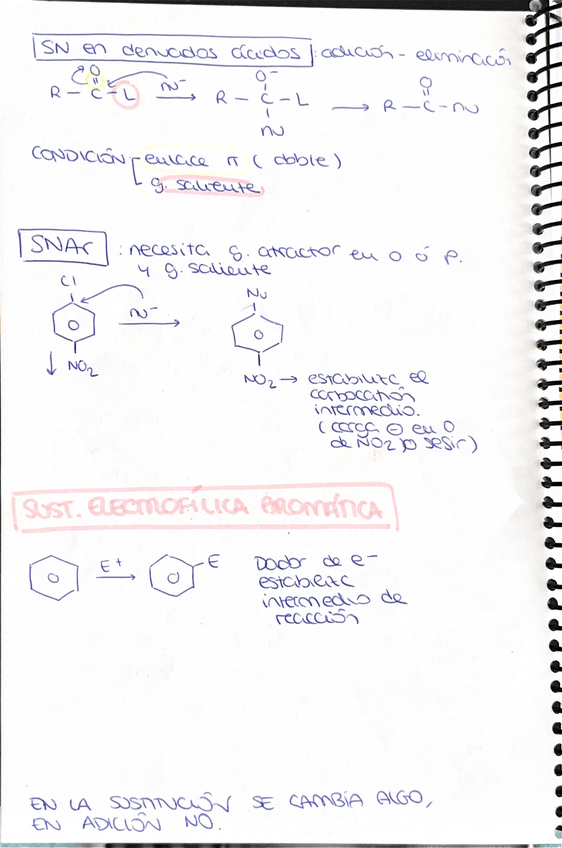 SN en derivados ácidos : adición - eliminación
O
R - C - L
Nu⁻
O⁻
R - C - L
Nu
O
R - C - Nu
CONDICIÓN enlace π (doble)
g. saliente
SNAr : necesita g. atractor en o ó p.
y g. saliente
Cl
Nu⁻
NO₂
Nu
NO₂ → estabiliza el
carbocatión
intermedio.
(carga ⊖ en O
de NO₂
SUST. ELECTROFÍLICA AROMÁTICA
E+
E
Dador de e⁻
estabiliza
intermedio de
reacción
EN LA SUSTITUCIÓN SE CAMBIA ALGO,
EN ADICIÓN NO.